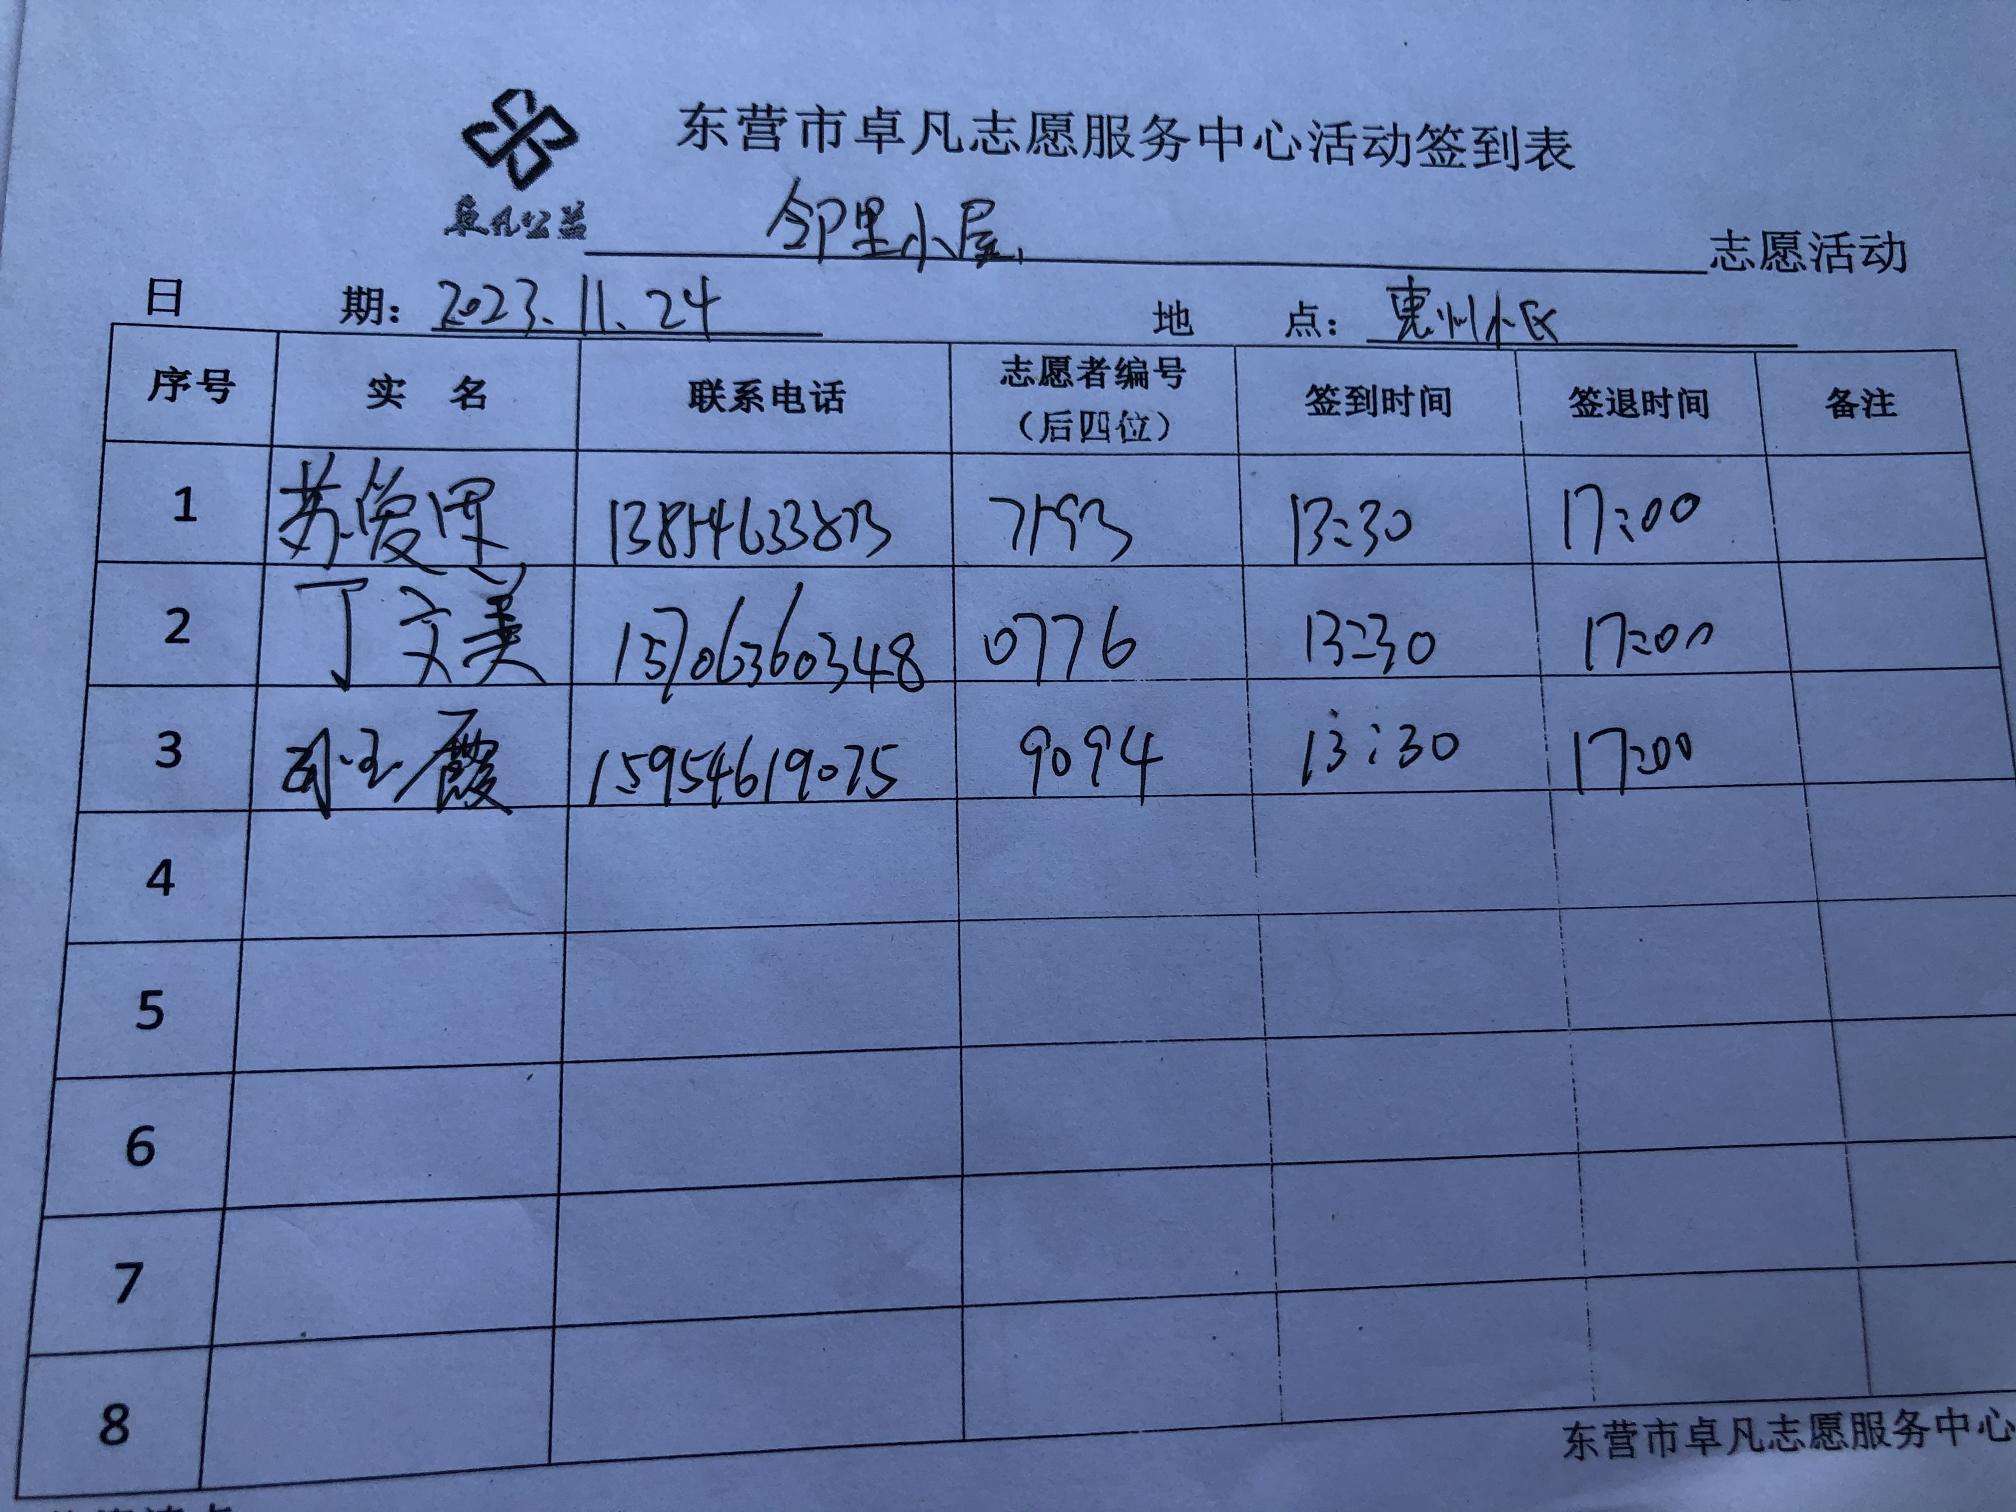 东营市卓凡志愿服务中心活动签到表
卓凡公益
邻里小屋 志愿活动
日 期: 2023.11.24 地 点: 惠州小区
序号 实 名 联系电话 志愿者编号（后四位） 签到时间 签退时间 备注
1 苏爱田 13854633873 7193 13:30 17:00
2 丁文美 15706360348 0776 13:30 17:00
3 孙玉霞 15954619075 9094 13:30 17:00
4
5
6
7
8
东营市卓凡志愿服务中心